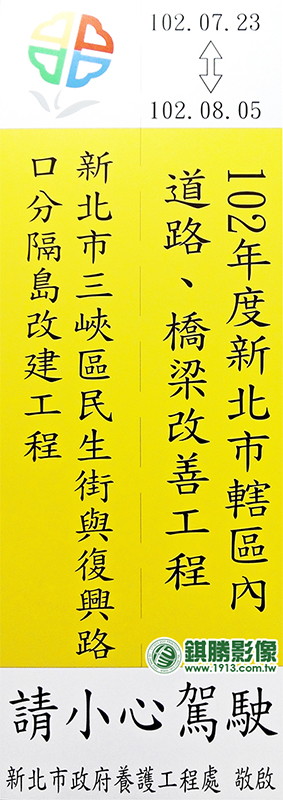 102.07.23
102.08.05
102年度新北市轄區內
道路、橋梁改善工程
新北市三峽區民生街與復興路
口分隔島改建工程
錤勝影像
www.1913.com.tw
請小心駕駛
新北市政府養護工程處 敬啟